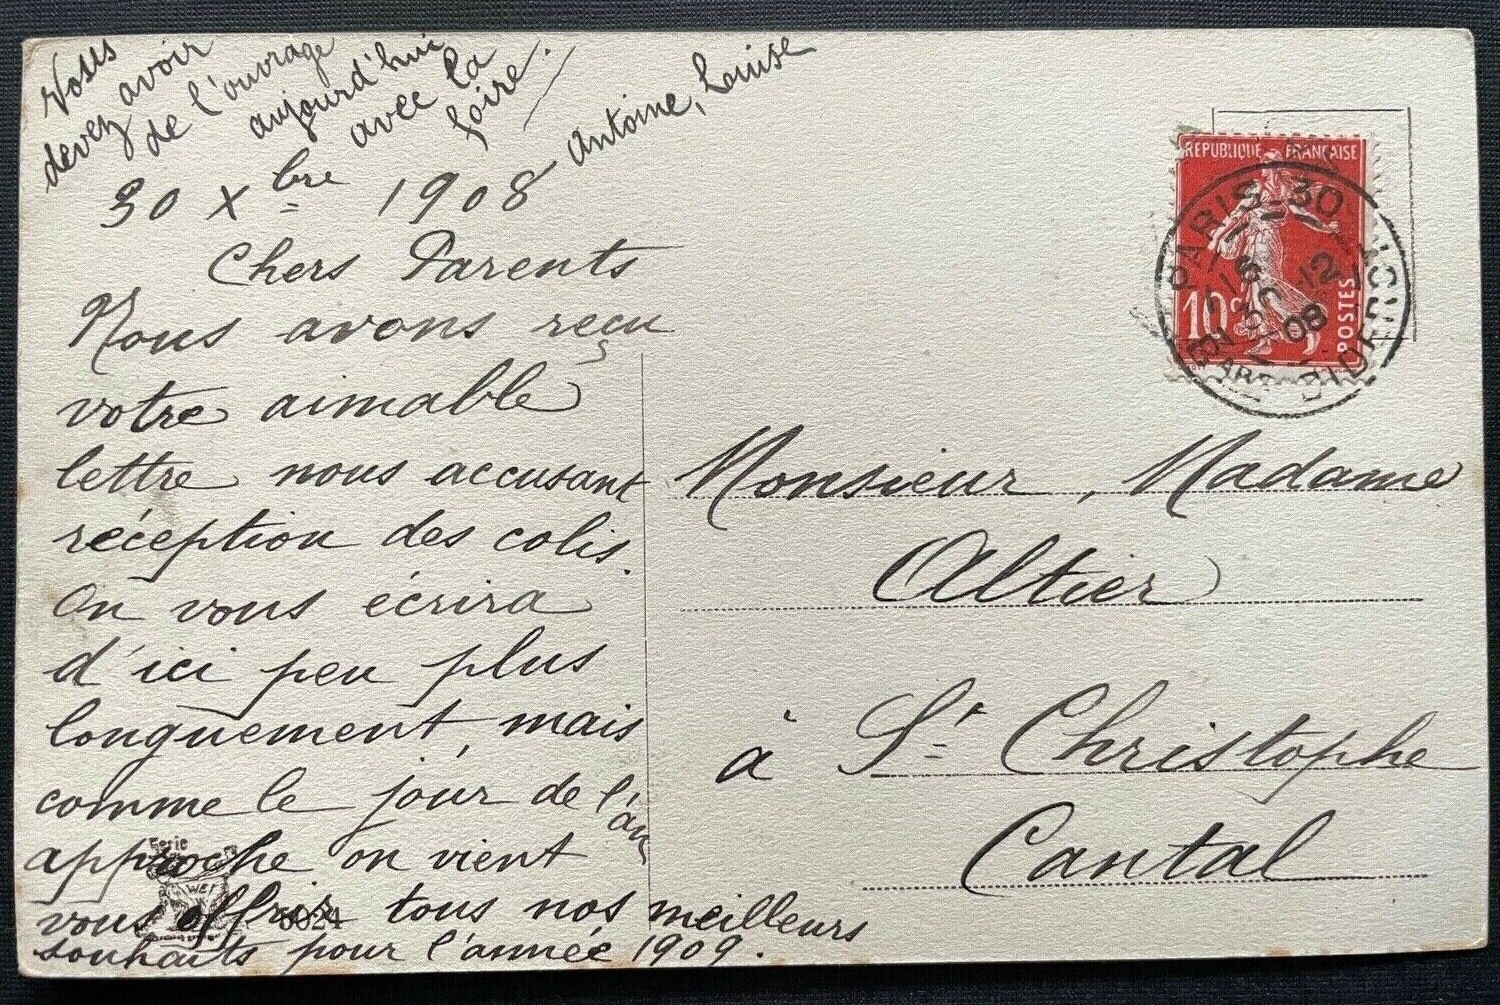 Vous
devez avoir
de l'ouvrage
aujourd'hui
avec la
foire.
Antoine, Louise
30 Xbre 1908
Chers Parents
Nous avons reçu
votre aimable
lettre nous accusant
réception des colis.
On vous écrira
d'ici peu plus
longuement, mais
comme le jour de l'an
approche on vient
vous offrir tous nos meilleurs
souhaits pour l'année 1909.
Serie
5024
REPUBLIQUE FRANÇAISE
10c
POSTES
PARIS - 30
30 - 12
08
Monsieur, Madame
Altier
à St Christophe
Cantal